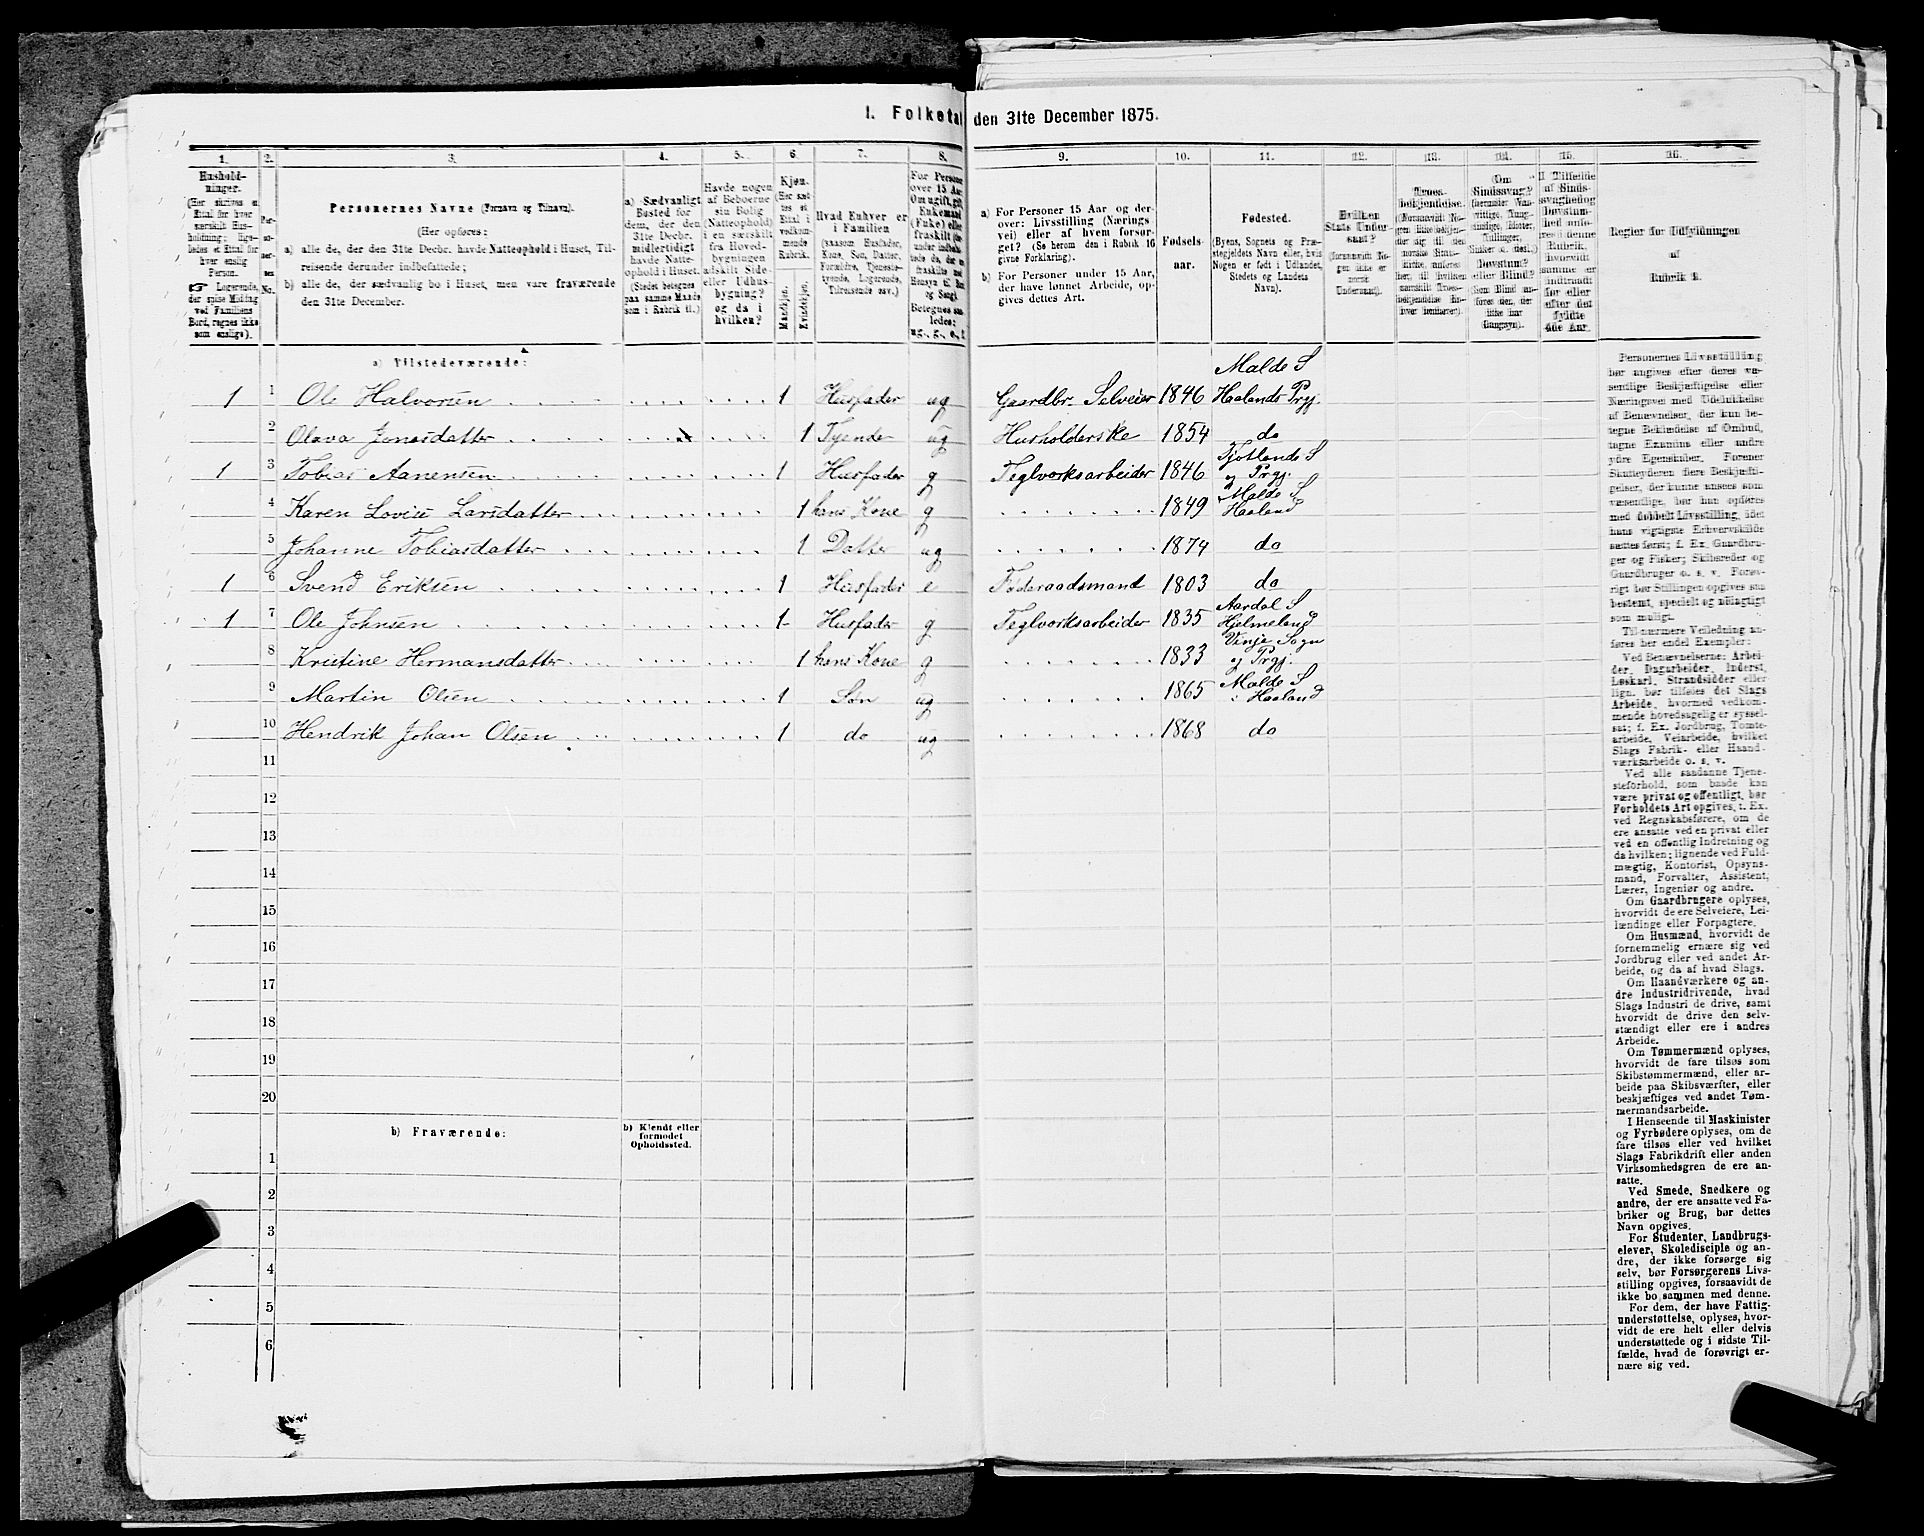 I. Folketal den 31te December 1875.
1. 2. 3. 4. 5. 6. 7. 8. 9. 10. 11. 12. 13. 14. 15. 16.
Hushold-
ninger.
(Her skrives et
Ettal for hver
særskilt Hus-
holdning; lige-
ledes et Ettal for
hver enslig
Person.
☞ Logerende,
der spise Middag
ved Familiens
Bord, regnes ikke
som enslige).
Per-
so-
ner-
nes
No.
Personernes Navne (Fornavn og Tilnavn).
(Her opføres:
a) alle de, der den 31te Decbr. havde Natteophold i Huset, Til-
reisende derunder indbefattede;
b) alle de, der sædvanlig bo i Huset, men vare fraværende
den 31te December.
a) Sædvanligt
Bosted for
dem, der den
31te Decbr.
midlertidigt
havde Natte-
ophold i Huset.
(Stedet betegnes
paa samme Maade
som i Rubrik 11.)
Havde nogen
af Beboerne
sin Bolig
(Natteophold)
i en særskilt
fra Hoved-
bygningen
adskilt Side-
eller Udhus-
bygning?
og da i
hvilken?
Kjøn.
(Her sæt-
tes et
Ettal i
vedkom-
mende
Rubrik.
Mandkjøn.
Kvindekjøn.
Hvad Enhver er
i Familien
(saasom Husfader,
Kone, Søn, Datter,
Forældre, Tjeneste-
tyende, Logerende,
Tilreisende osv.)
For Personer
over 15 Aar:
Om ugift, gift,
Enkemand
(Enke) eller
fraskilt
ug., g., e., f.
a) For Personer 15 Aar og der-
over: Livsstilling (Nærings-
vei) eller af hvem forsør-
get? (Se herom den i Rubrik 16
givne Forklaring).
b) For Personer under 15 Aar,
der have lønnet Arbeide, op-
gives dettes Art.
Fødsels-
aar.
Fødested.
(Byens, Sognets og Præ-
stegjeldets Navn eller, hvis
Nogen er født i Udlandet,
Stedets og Landets
Navn).
Hvilken
Stats Under-
saat?
(forsaavidt No-
gen ikke er
norsk
Undersaat).
Troes-
bekjendelse.
(Forsaavidt No-
gen ikke bekjen-
der sig til den
norske Stats-
kirke, anføres
her, til hvilken
særskilt Troes-
bekjendelse En-
hver henhører).
Om
Sindssvag?
Døvstum?
eller Blind?
I Tilfælde
af Sinds-
svaghed og
Døvstum-
hed
hvorvidt
samme er
indtraadt
før eller
efter det
fyldte
4de Aar.
Regler for Udfyldningen
af
Rubrik 9.
a) Tilstedeværende:
Malde S
1 1 Ole Halvorsen 1 Husfader ug Gaardbr. Selveier 1846 Haalands Prgj.
2 Olava Jonasdatter 1 Tyende ug Husholderske 1854 do
Fjotlands S
1 3 Tobias Aanensen 1 Husfader g Teglværksarbeider 1846 og Prgj.
Malde S
4 Karen Lovise Larsdatter 1 hans Kone g 1849 Haaland
5 Johanne Tobiasdatter 1 Datter ug 1874 do
1 6 Svend Eriksen 1 Husfader e Føderaadsmand 1803 do
Aardal S
1 7 Ole Johnsen 1 Husfader g Teglværksarbeider 1835 Hjelmeland
Vinje Sogn
8 Kristine Hermansdatter 1 hans Kone g 1833 og Prgj.
Malde S
9 Martin Olsen 1 Søn ug 1865 i Haaland
10 Hendrik Johan Olsen 1 do ug 1868 do
11
12
13
14
15
16
17
18
19
20
b) Fraværende:
b) Kjendt eller
formodet
Opholdssted.
1
2
3
4
5
6
Personernes Livsstilling
bør angives efter deres væ-
sentlige Beskjæftigelse eller
Næringsvei med Udelukkelse
af Benævnelser, der kun be-
tegne Beklædelse af Ombud,
tagne Examina eller andre
ydre Egenskaber. Forener
Skatteyderen flere Beskjæfti-
gelser, der kunne ansees som
væsentlige, bør han opføres
med dobbelt Livsstilling, idet
hans vigtigste Erhvervskilde
sættes først; f. Ex. Gaardbru-
ger og Fisker; Skibsreder og
Gaardbruger o. s. v. Forøv-
rigt bør Stillingen opgives saa
bestemt, specielt og nøiagtigt
som muligt.
Til nærmere Veiledning an-
føres her endel Exempler:
Ved Benævnelserne: Arbei-
der, Dagarbeider, Inderst,
Løskarl, Strandsidder eller
lign. bør tilføies det Slags
Arbeide, hvormed vedkom-
mende hovedsagelig er syssel-
sat; f. Ex. Jordbrug, Tomte-
arbeide, Veiarbeide, hvilket
Slags Fabrik- eller Haand-
værksarbeide o. s. v.
Ved alle saadanne Tjene-
steforhold, som baade kan
være privat og offentligt, bør
Forholdets Art opgives, t. Ex.
ved Regnskabsførere, om de
ere ansatte ved en privat eller
ved en offentlig Indretning og
da hvilken; lignende ved Fuld-
mægtig, Kontorist, Opsyns-
mand, Forvalter, Assistent,
Lærer, Ingeniør og andre.
Om Gaardbrugere oplyses,
hvorvidt de ere Selveiere, Lei-
lændinge eller Forpagtere.
Om Husmænd, hvorvidt de
fornemmelig ernære sig ved
Jordbrug eller ved andet Ar-
beide, og da af hvad Slags.
Om Haandværkere og an-
dre Industridrivende, hvad
Slags Industri de drive, samt
hvorvidt de drive den selv-
stændigt eller ere i andres
Arbeide.
Om Tømmermænd oplyses,
hvorvidt de fare tilsøs som
Skibstømmermænd, eller ar-
beide paa Skibsværfter, eller
beskjæftiges ved andet Tøm-
mermandsarbeide.
I Henseende til Maskinister
og Fyrbødere oplyses, om de
fare tilsøs eller ved hvilket
Slags Fabrikdrift eller anden
Virksomhedsgren de ere an-
satte.
Ved Smede, Snedkere og
andre, der ere ansatte ved Fa-
briker og Brug, bør dettes
Navn opgives.
For Studenter, Landbrugs-
elever, Skoledisciple og an-
dre, der ikke forsørge sig
selv, bør Forsørgerens Livs-
stilling opgives, forsaavidt de
ikke bo sammen med denne.
For dem, der have Fattig-
understøttelse, oplyses, hvor-
vidt de ere helt eller delvis
understøttede og i sidste Til-
fælde, hvad de forøvrigt er-
nære sig ved.